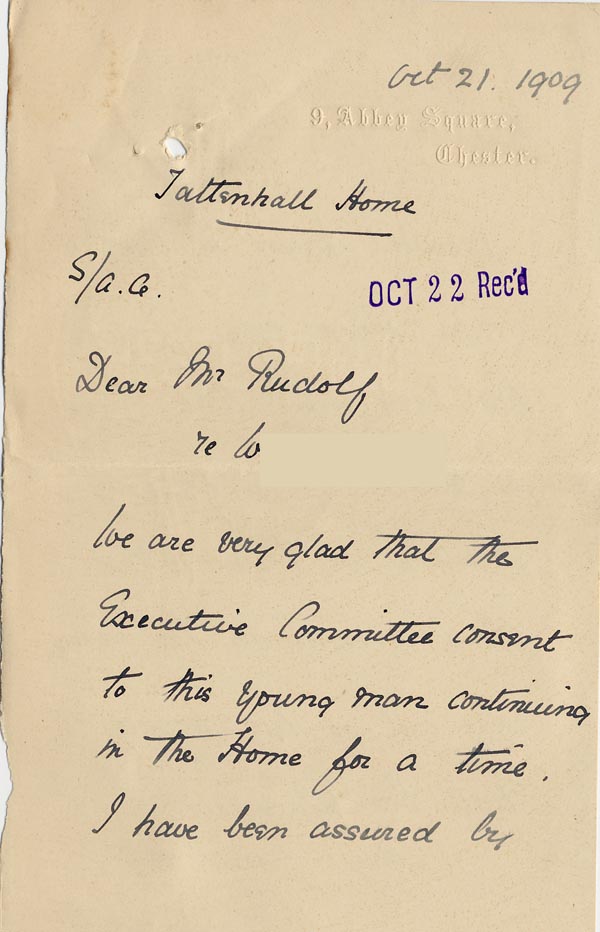 Oct 21. 1909
9, Abbey Square,
Chester.
Tattenhall Home
S/a.C.
OCT 22 Rec'd
Dear Mr Rudolf
re W
We are very glad that the
Executive Committee consent
to this young man continuing
in the Home for a time.
I have been assured by